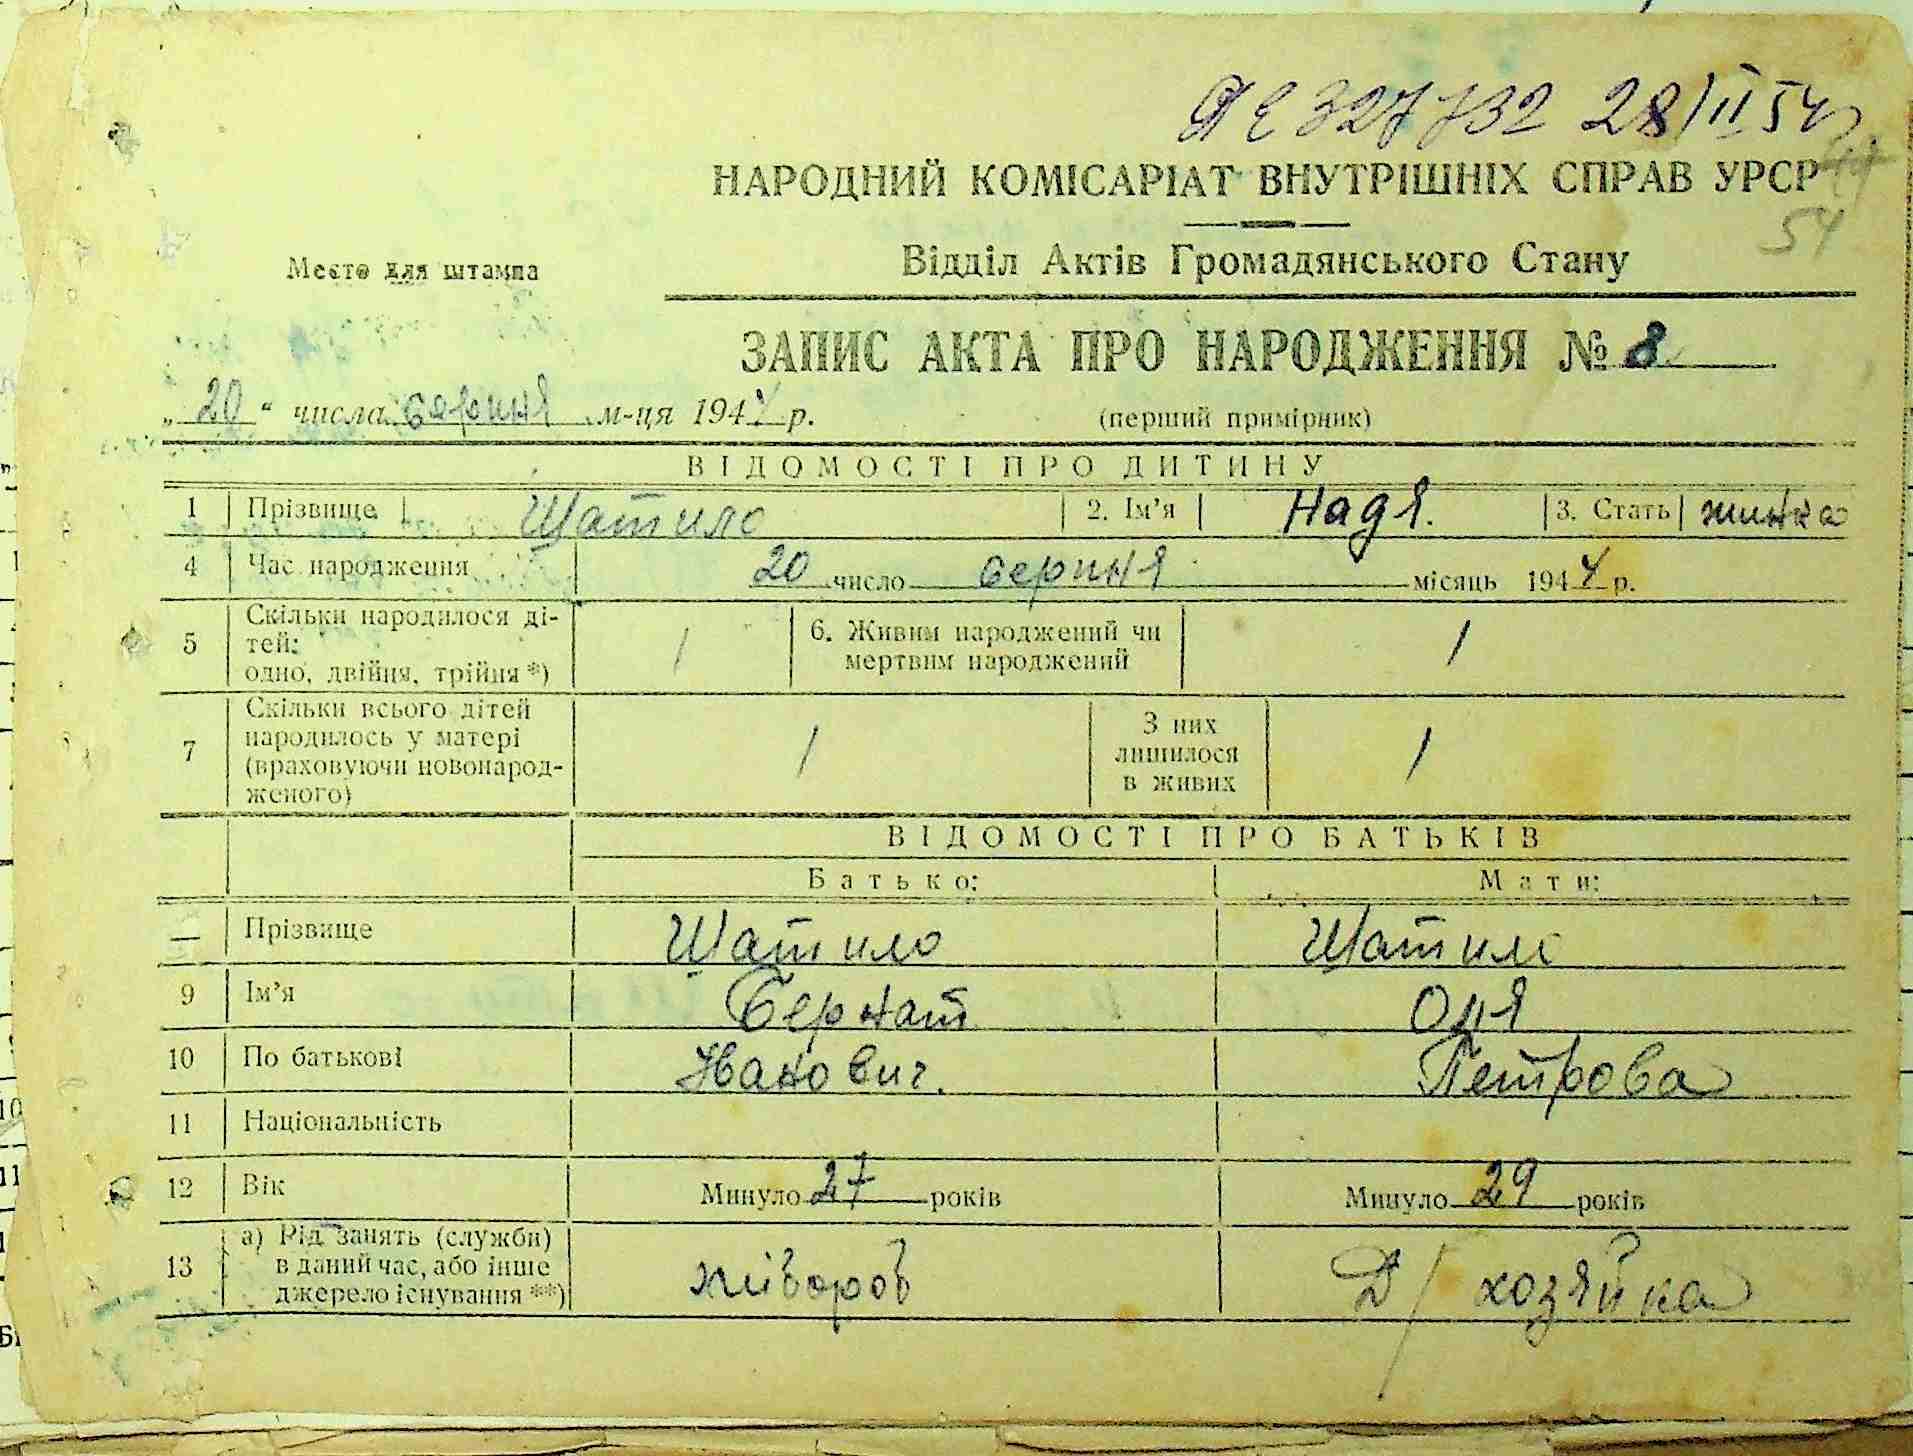 ЯЕ 327732 28/II 54
НАРОДНИЙ КОМІСАРІАТ ВНУТРІШНІХ СПРАВ УРСР
54
Место для штампа
Відділ Актів Громадянського Стану
ЗАПИС АКТА ПРО НАРОДЖЕННЯ № 8
„20“ числа серпня м-ця 1944 р.
(перший примірник)
ВІДОМОСТІ ПРО ДИТИНУ
1 Прізвище Шатило 2. Ім'я Надя. 3. Стать жинка
4 Час народження 20 число серпня місяць 1944 р.
5 Скільки народилося ді-
тей:
одно, двійня, трійня *) 1
6. Живим народжений чи
мертвим народжений 1
7 Скільки всього дітей
народилось у матері
(враховуючи новонарод-
женого) 1
З них
лишилося
в живих 1
ВІДОМОСТІ ПРО БАТЬКІВ
Батько: Мати:
Прізвище Шатило Шатило
9 Ім'я Бернат Оля
10 По батькові Иванович. Петрова
11 Національність
12 Вік Минуло 27 років Минуло 29 років
13 а) Рід занять (служби)
в даний час, або інше
джерело існування **)
Д/хозяйка